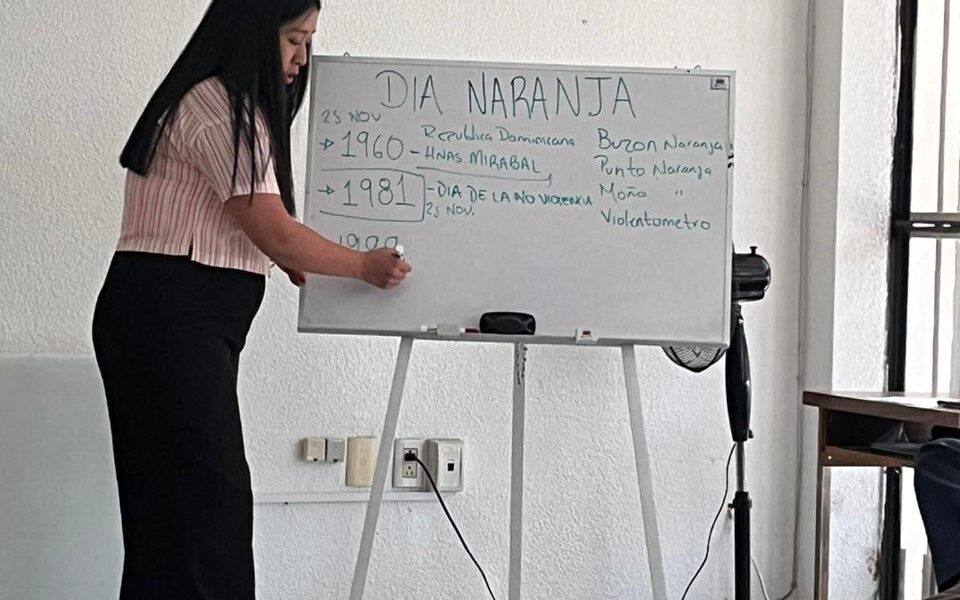 DIA NARANJA
25 NOV
→ 1960 - Republica Dominicana
HNAS MIRABAL
→ 1981 - DIA DE LA NO VIOLENCIA
25 NOV.
Buzon Naranja
Punto Naranja
Moño "
Violentometro